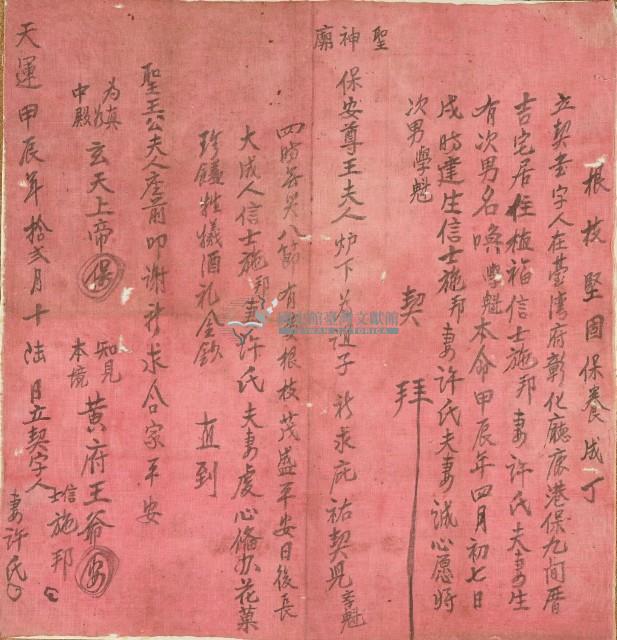 根枝堅固保養成丁
立契書字人在臺灣府彰化廳鹿港保九間厝
吉宅居住植福信士施邦妻許氏夫妻生
有次男名喚學魁本命甲辰年四月初七日
戌時建生信士施邦妻許氏夫妻誠心愿將
次男學魁
契拜
聖神廟
保安尊王夫人炉下為誼子祈求庇祐契兒學魁
四時無災八節有慶根枝茂盛平安日後長
大成人信士施邦妻許氏夫妻虔心偹办花菓
珍饈牲儀酒礼金釵直到
聖王公夫人座前叩谢祈求合家平安
為憑
中殿
玄天上帝
保
知見
本境
黄府王爺
安
天運甲辰年拾弍月十陆日立契字人
信士施邦
妻許氏
國史館臺灣文獻館
TAIWAN HISTORICA